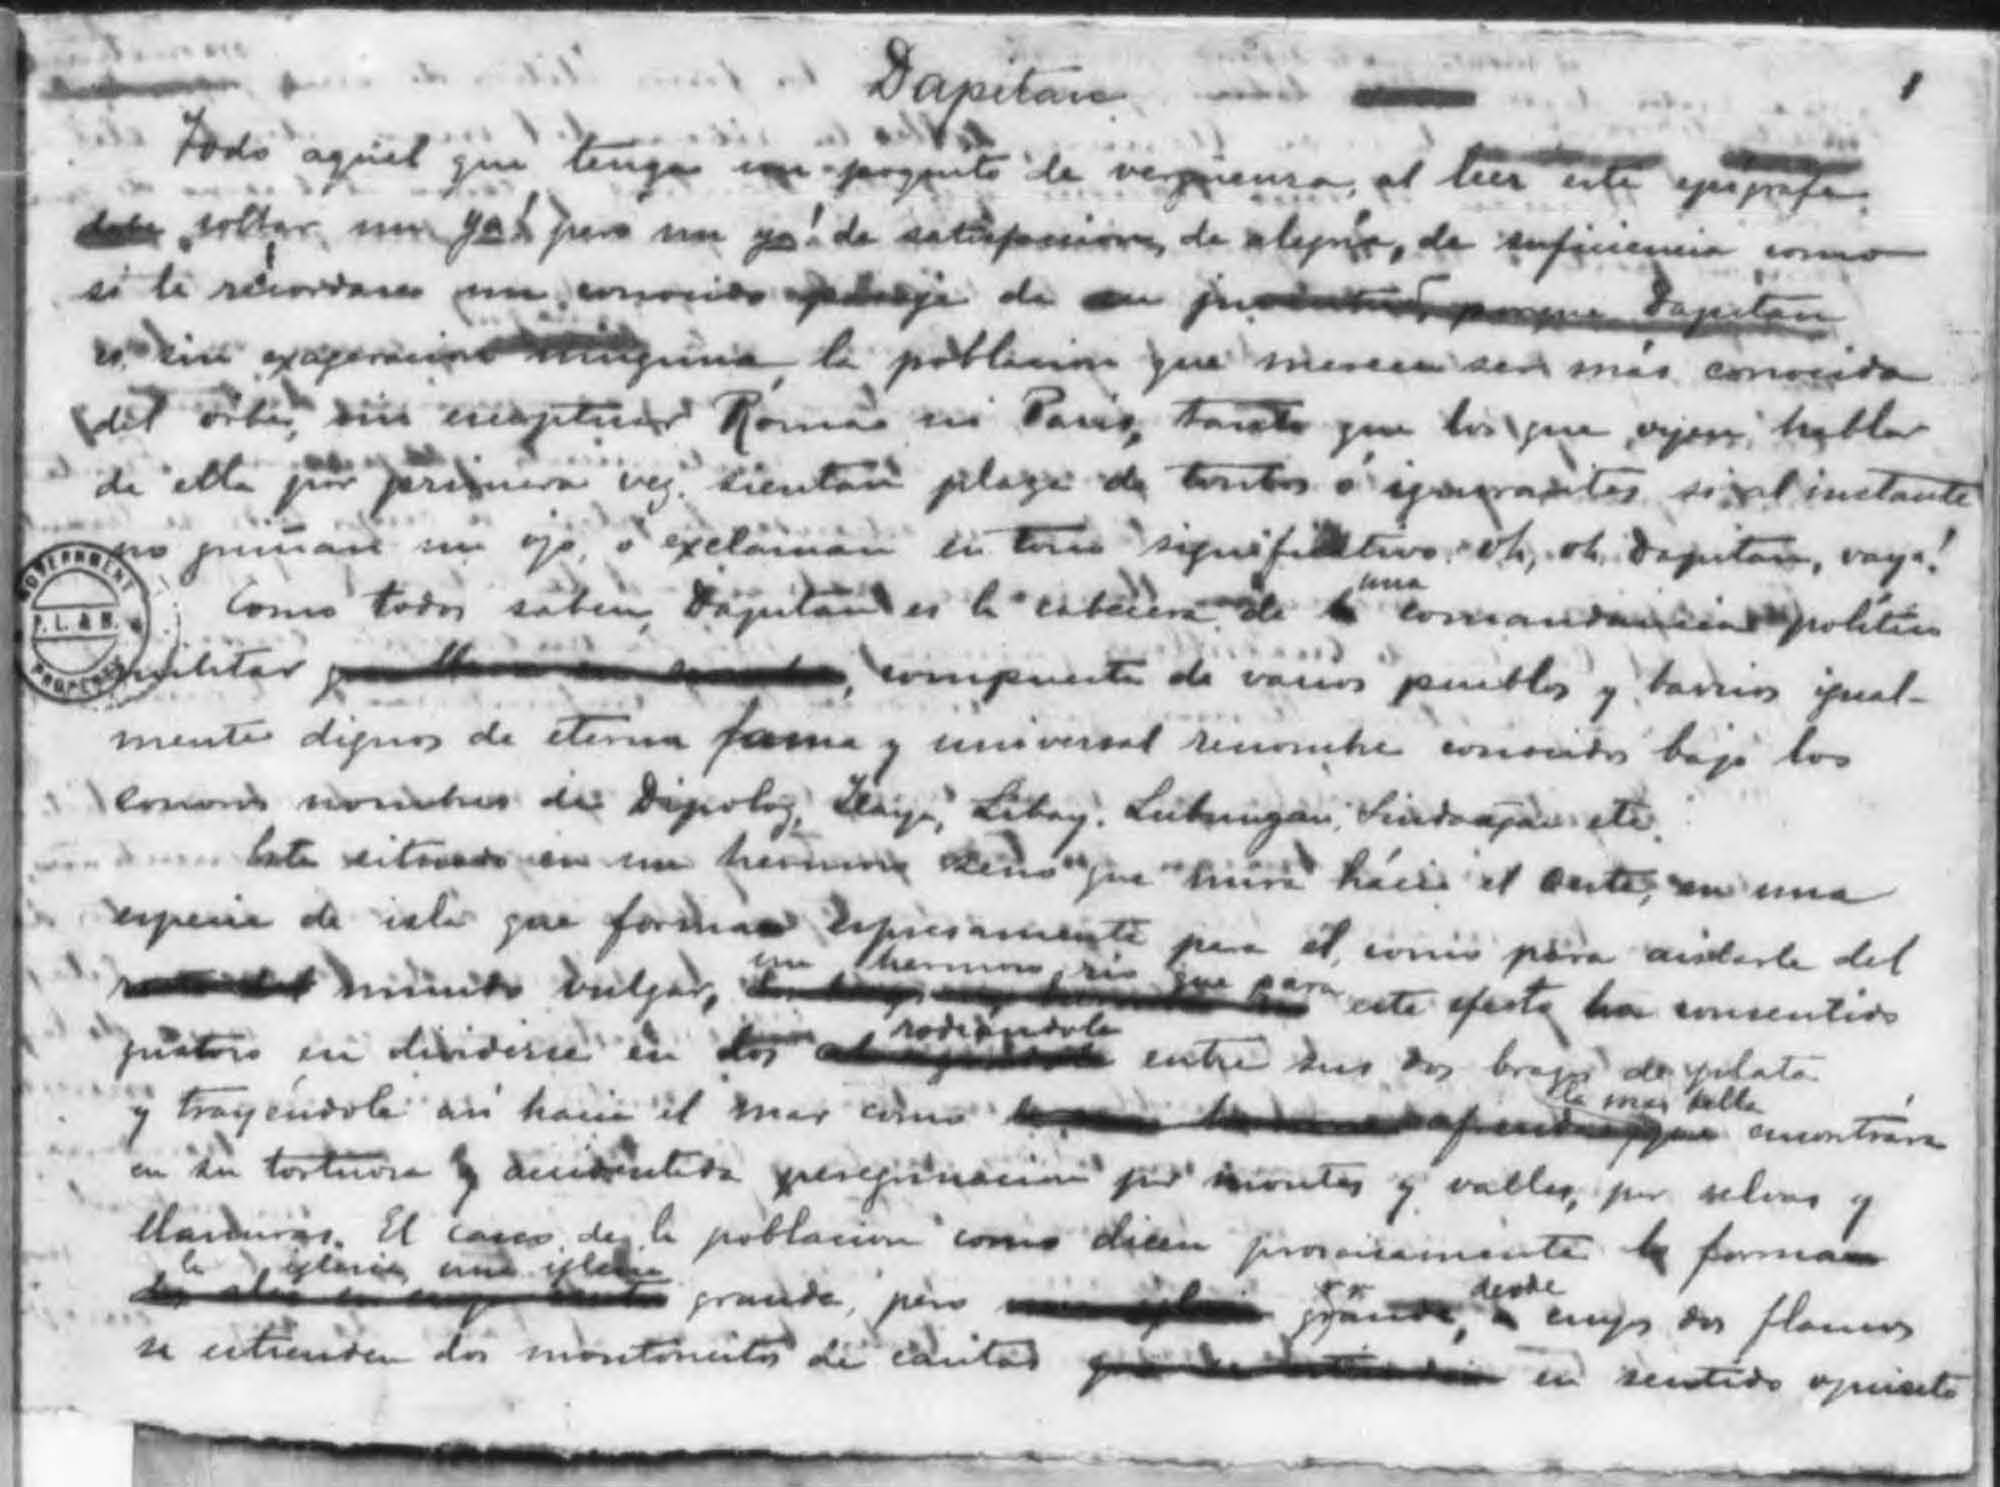 Dapitan
1
Todo aquel que tenga un poquito de vergüenza, al leer este epigrafe
soltar un ya! pero un ya! de satisfaccion, de alegria, de suficiencia como
si le recordasen un conocido pasaje de su juventud, porque Dapitan
es sin exageracion ninguna, la poblacion que merece ser más conocida
del orbe, sin esceptuar Roma ni Paris, tanto que los que oyen hablar
de ella por primera vez sientan plaza de tontos ó ignorantes si al instante
no guiñan un ojo, ó exclaman en tono significativo: oh, oh, Dapitan, vaya!
Como todos saben, Dapitan es la cabecera de una comandancia politico
militar, compuesta de varios pueblos y barrios igual-
mente dignos de eterna fama y universal renombre conocidos bajo los
sonoros nombres de Dipolog, Ilaya, Libay, Lubungan, Sindangan etc.
Está situado en un hermoso seno que mira hácia el Oeste, en una
especie de isla que forma espresamente para él, como para aislarle del
mundo vulgar, un hermoso rio que para este efecto ha consentido
gustoso en dividirse en dos rodeándola entre sus dos brazos de plata
y trayéndola asi hacia el mar como la mas bella encontrara
en su tortuosa y accidentada peregrinacion por montes y valles, por selvas y
llanuras. El casco de la poblacion como dicen prosaicamente lo forma
la iglesia, una iglesia grande, pero grande, desde cuyos dos flancos
se estienden dos montoncitos de casitas en sentido opuesto
GOVERNMENT
P. L. & M.
PROPERTY